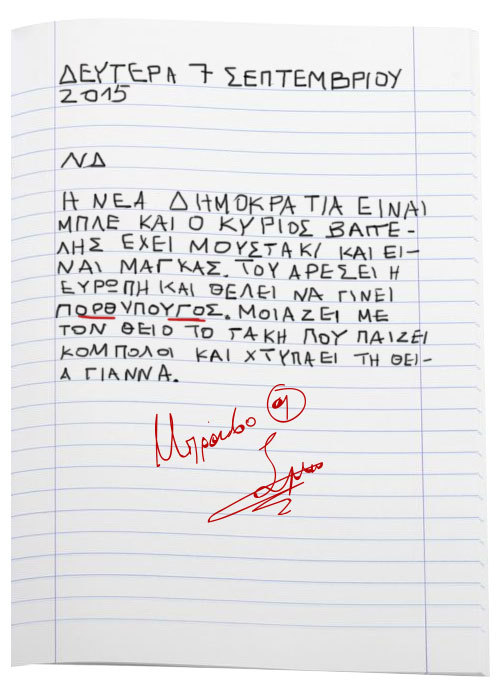 ΔΕΥΤΕΡΑ 7 ΣΕΠΤΕΜΒΡΙΟΥ
2015
ΝΔ
Η ΝΕΑ ΔΗΜΟΚΡΑΤΙΑ ΕΙΝΑΙ
ΜΠΛΕ ΚΑΙ Ο ΚΥΡΙΟΣ ΒΑΓΓΕ-
ΛΗΣ ΕΧΕΙ ΜΟΥΣΤΑΚΙ ΚΑΙ ΕΙ-
ΝΑΙ ΜΑΓΚΑΣ. ΤΟΥ ΑΡΕΣΕΙ Η
ΕΥΡΩΠΗ ΚΑΙ ΘΕΛΕΙ ΝΑ ΓΙΝΕΙ
ΠΟΡΘΥΠΟΥΓΟΣ. ΜΟΙΑΖΕΙ ΜΕ
ΤΟΝ ΘΕΙΟ ΤΟ ΤΑΚΗ ΠΟΥ ΠΑΙΖΕΙ
ΚΟΜΠΟΛΟΙ ΚΑΙ ΧΤΥΠΑΕΙ ΤΗ ΘΕΙ-
Α ΓΙΑΝΝΑ.
Μπράβο